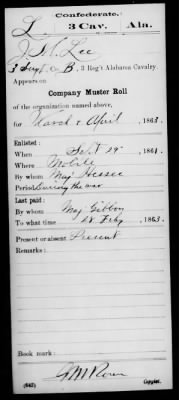 Confederate.
L 3 Cav. Ala.
J. S. Lee
Co. B, 3 Reg't Alabama Cavalry.
Appears on
Company Muster Roll
of the organization named above,
for March & April, 1863.
Enlisted:
When Sept 29, 1861.
Where Mobile
By whom Maj. Hessee
Period During the war
Last paid:
By whom Maj Gibbon
To what time 28 Feby, 1863.
Present or absent Present
Remarks:
Book mark:
(642) Copyist.